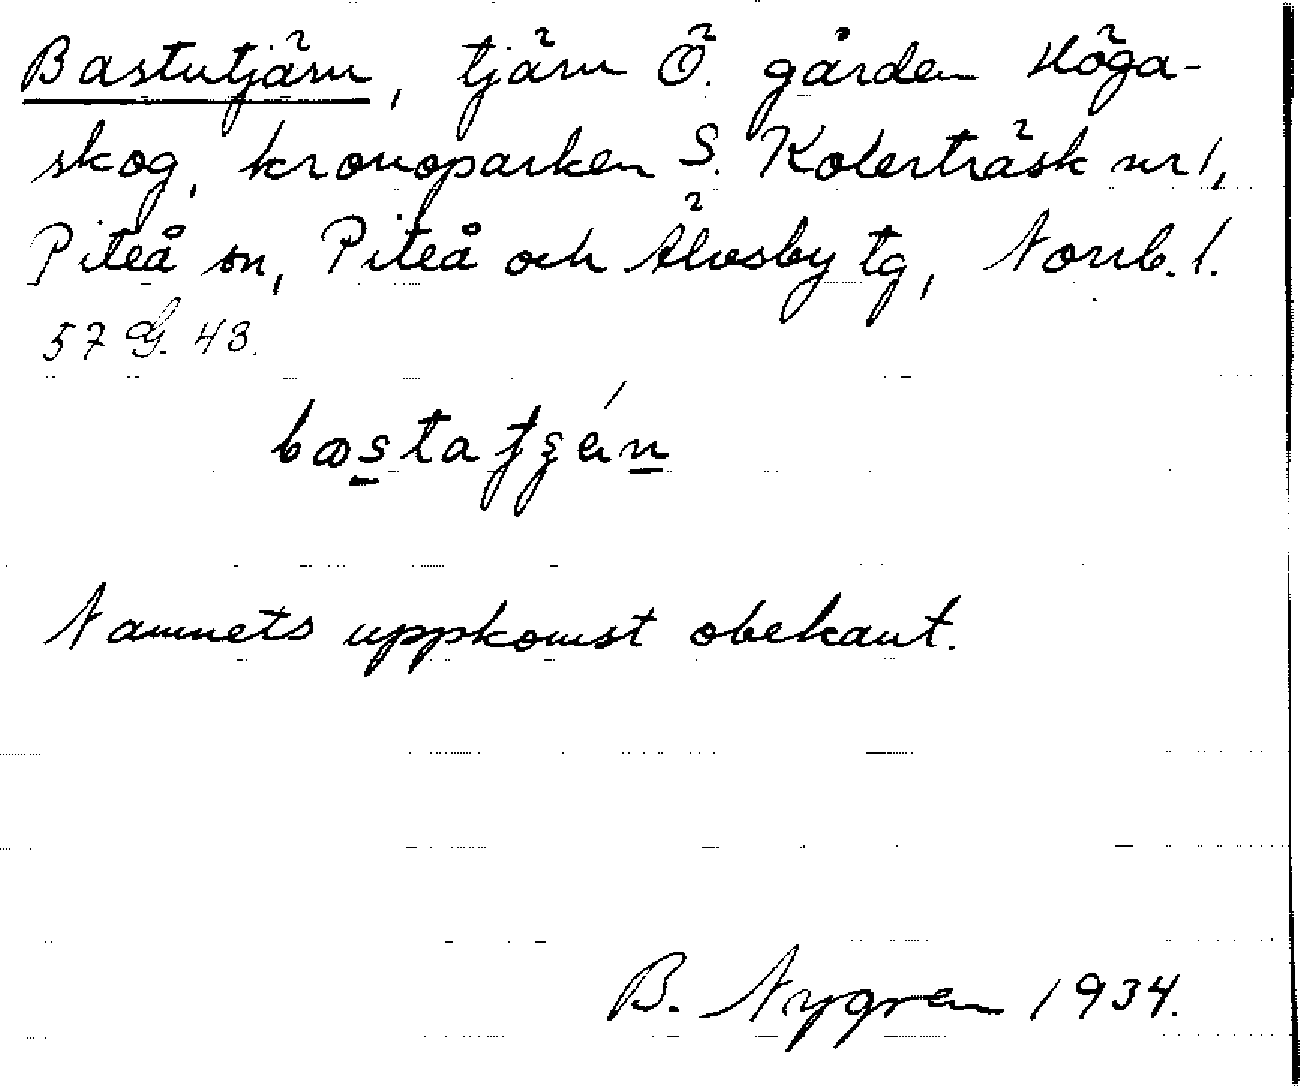 Bastutjärn, tjärn Ö. gården Höga-
skog, kronoparken S. Kolerträsk nr 1,
Piteå sn, Piteå och Älvsby tg, Norrb. l.
57 G. 43.
Namnets uppkomst obekant.
B. Nygren 1934.